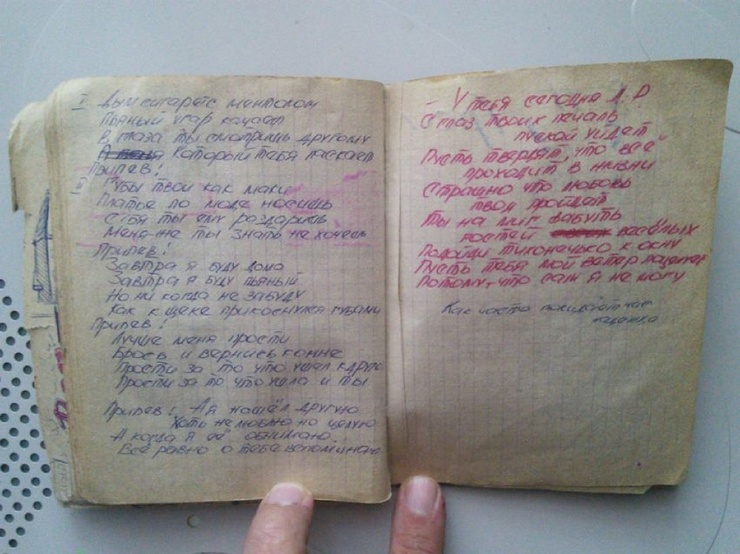 I Дым сигарет с ментолом
Пьяный угар качает
В глаза ты смотришь другому
Который тебя ласкает
Припев!
Губы твои как маки
Платье по моде носишь
Себя ты ему раздаришь
Меня же ты знать не хочешь
Припев!
Завтра я буду дома
Завтра я буду пьяный
Но ни когда не забуду
Как к щеке прикоснулся губами
Припев!
Лучше меня прости
Брось и вернись комне
Прости за то что ушел к другой
Прости за то что ушла и ты
Припев! А я нашёл другую
Хоть не люблю но целую
А когда я её обнимаю
Всё равно о тебе вспоминаю
– У тебя сегодня Д.Р
С глаз твоих печаль
пускай уйдет
Пусть твердят, что всё
проходит в жизни
Страшно что любовь
твоя пройдет
Ты на миг забудь
гостей весёлых
Подойди тихонечко к окну
Пусть тебя мой ветер поцелует
Потому-что сам я не могу
Как часто